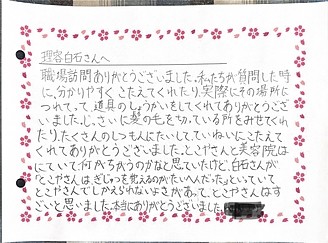 理容白石さんへ
職場訪問ありがとうございました。私たちが質問した時
に、分かりやすくこたえてくれたり、実際にその場所に
つれてって、道具のしょうかいをしてくれてありがとうござ
いました。じっさいに髪の毛を切っている所をみせてくれ
たり、たくさんのしつもんにたいして、ていねいにこたえて
くれてありがとうございました。とこやさんと美容院は
にていて、何がちがうのかなと思ていたけど、白石さんが
「とこやさんは、ぎじゅつを覚えるのがたいへんだった」といていて
とこやさんでしかえられないよさがあって、とこやさんはす
ごいと思いました。本当にありがとうございました。